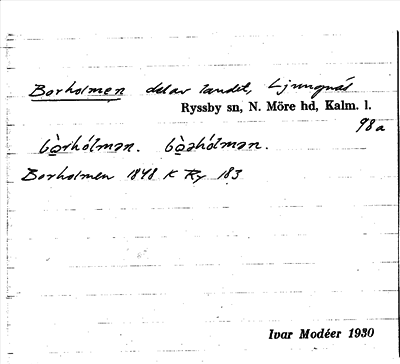 Borholmen del av landet, Ljungnäs
Ryssby sn, N. Möre hd, Kalm. l.
98a
bòrhólmən. bòəhólmən.
Borholmen 1848 K Ry 183
Ivar Modéer 1930